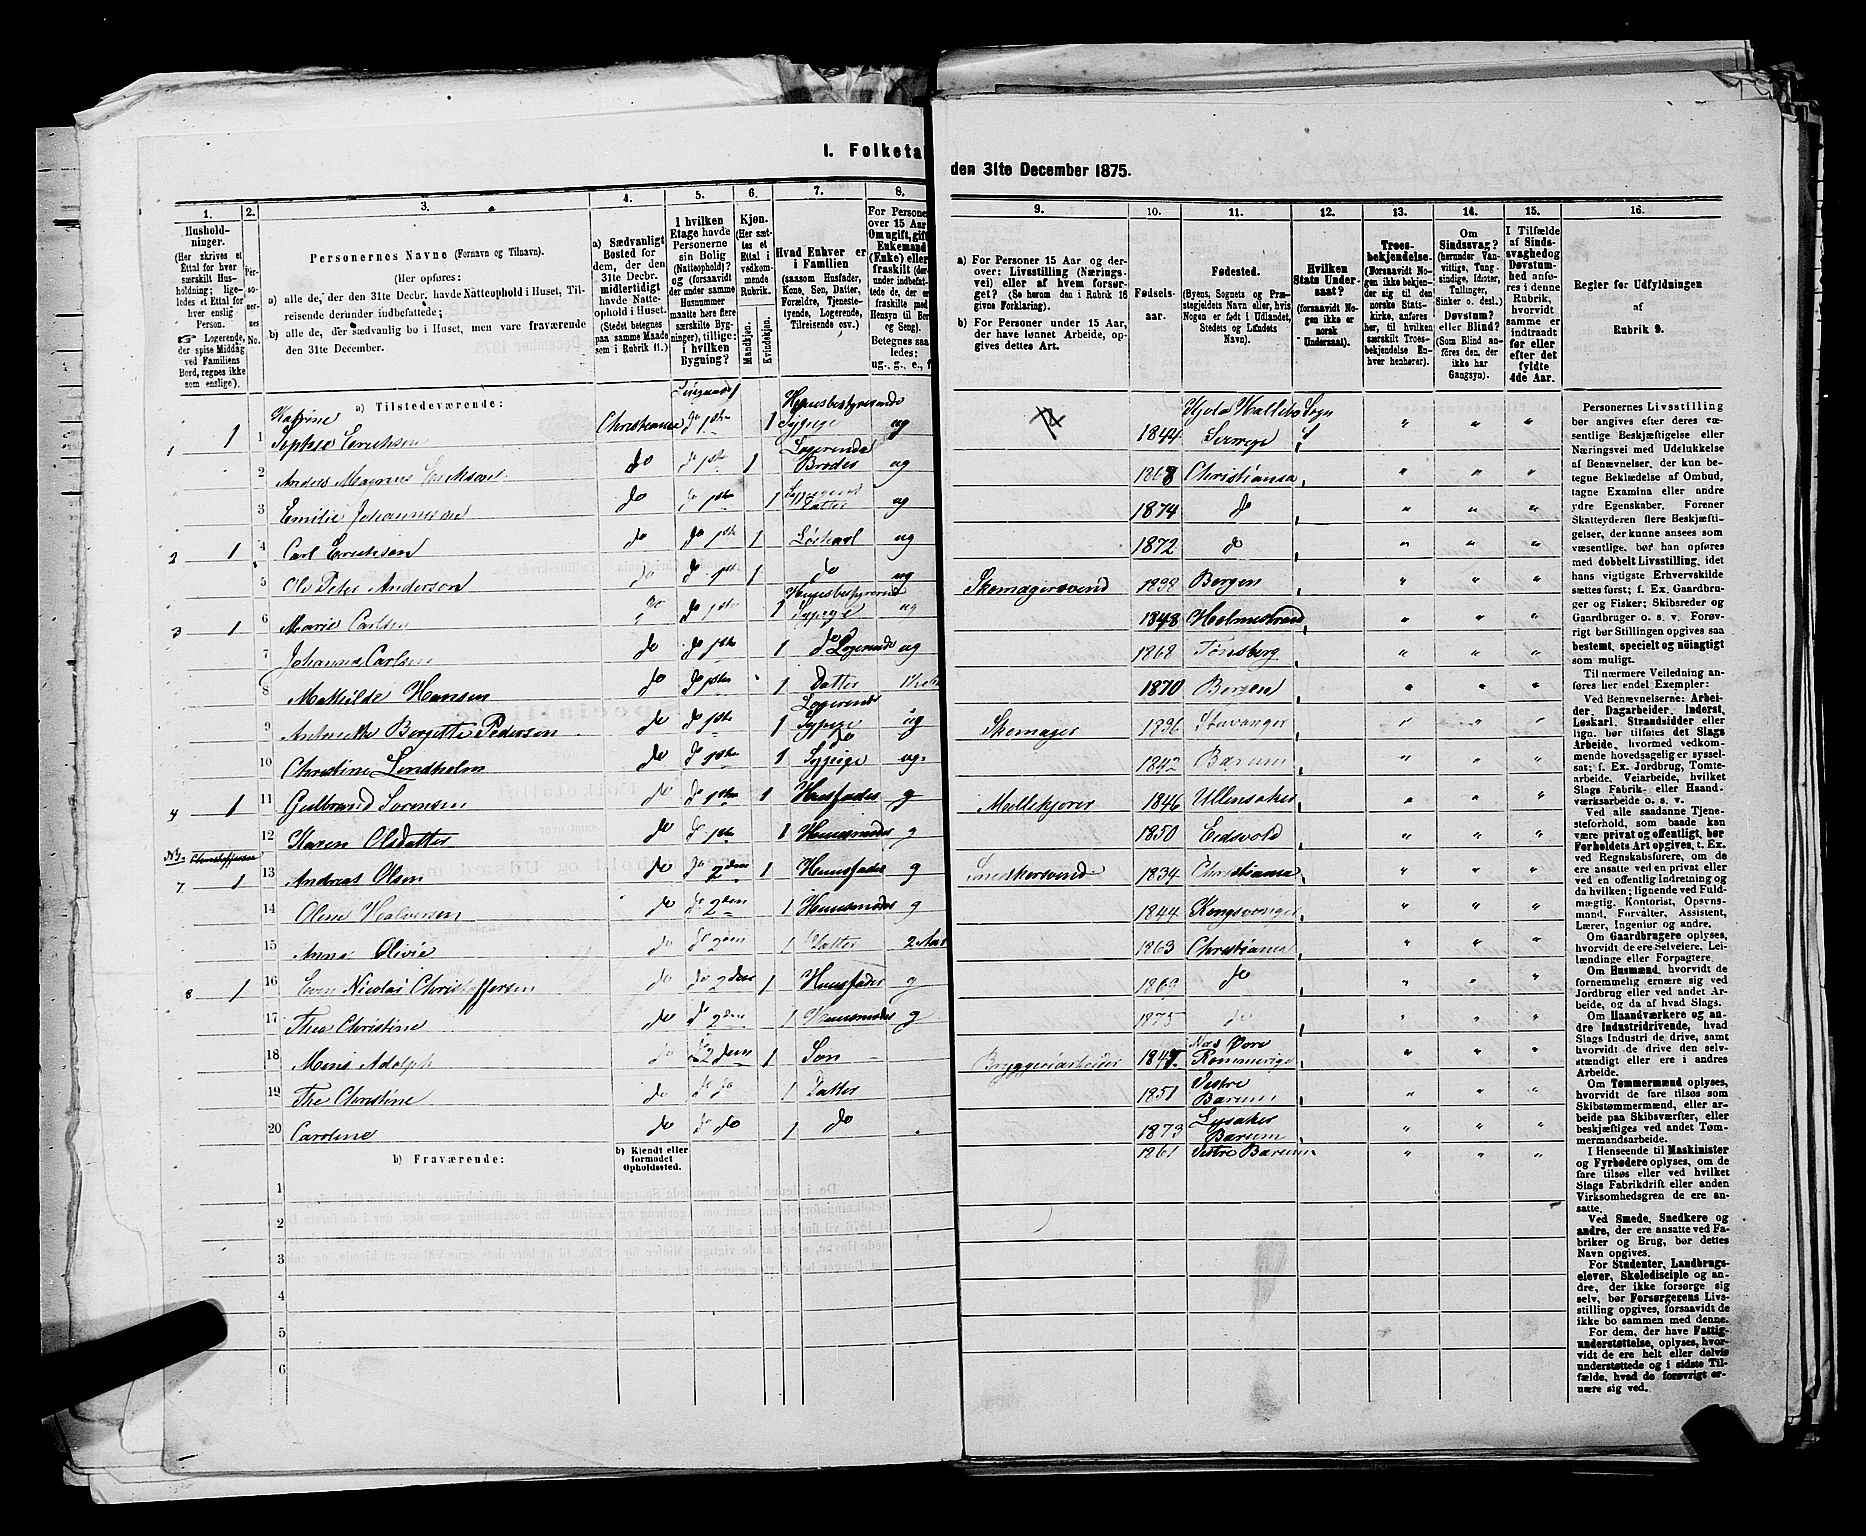 I. Folketal
den 31te December 1875.
1.
Husholdninger.
(Her skrives et
Ettal for hver
særskilt Husholdning; ligeledes et Ettal for
hver enslig
Person.
Logerende,
der spise Middag
ved Familiens
Bord, regnes ikke
som enslige).
2.
Personernes
No.
3.
Personernes Navne (Fornavn og Tilnavn).
(Her opføres:
a) alle de, der den 31te Decbr. havde Natteophold i Huset, Tilreisende derunder indbefattede;
b) alle de, der sædvanlig bo i Huset, men vare fraværende
den 31te December.
4.
a) Sædvanligt
Bosted for
dem, der den
31te Decbr.
midlertidigt
havde Natteophold i Huset.
(Stedet betegnes
paa samme Maade
som i Rubrik 11.)
5.
I hvilken
Etage havde
Personerne
sin Bolig
(Natteophold)?
(forsaavidt
der under samme
Husnummer
maatte høre flere
særskilte Bygninger), tillige:
i hvilken
Bygning?
6.
Kjøn.
(Her sættes et
Ettal i
vedkommende
Rubrik.)
Mandkjøn.
Kvindekjøn.
7.
Hvad Enhver er
i Familien
(saasom Husfader,
Kone, Søn, Datter,
Forældre, Tjenestetyende, Logerende,
Tilreisende osv.)
8.
For Personer
over 15 Aar
Om ugift, gift,
Enkemand
(Enke) eller
fraskilt
Betegnes saaledes:
ug., g., e., f.
9.
a) For Personer 15 Aar og derover: Livsstilling (Næringsvei) eller af hvem forsørget? (Se herom den i Rubrik 16
givne Forklaring).
b) For Personer under 15 Aar,
der have lønnet Arbeide, opgives dettes Art.
10.
Fødselsaar.
11.
Fødested.
(Byens, Sognets og Præstegjeldets Navn eller, hvis
Nogen er født i Udlandet,
Stedets og Landets
Navn).
12.
Hvilken
Stats Undersaat?
(forsaavidt
Nogen ikke er
norsk
Undersaat).
13.
Troesbekjendelse.
(Forsaavidt Nogen ikke bekjender sig til den
norske Statskirke, anføres
her, til hvilken
særskilt Troesbekjendelse Enhver henhører).
14.
Om
Sindssvag?
(herunder Vanvittige, Tungsindige, Idioter,
Tullinger,
Sinker o. desl.)
Døvstum?
eller Blind?
(Som Blind anføres den, der
ikke har
Gangsyn).
15.
I Tilfælde
af Sindssvaghed og
Døvstumhed anføres i denne
Rubrik,
hvorvidt
samme er
indtraadt
før eller
efter det
fyldte
4de Aar.
16.
Regler før Udfyldningen
af
Rubrik 9.
a) Tilstedeværende:
1 1 Katrine
1 Sophie Erichsen Christiania do 1ste 1 Husbestyrerinde Sypige ug 1844 Sverige
2 Anders Magnus Erichsen do do 1ste 1 Logerende ug 1868 Christiania
3 Emilie Johannesen do do 1ste 1 Datter ug 1874 do
2 1 4 Carl Erichsen do do 1ste 1 Løskarl ug 1872 do
5 Ole Peter Anderson do do 1ste 1 do ug Skomagersvend 1838 Bergen
3 1 6 Marie Carlsen do do 1ste 1 Husbestyrerind Sypige ug 1848 Holmestrand
7 Johanna Carlsen do do 1ste 1 do Logerende ug 1868 Tønsberg
8 Mathilde Hansen do do 1ste 1 Datter 1870 Bergen
9 Antonette Bergette Pedersen do do 1ste 1 Logerend Sypige ug Skomager 1836 Stavanger
10 Christine Lindholm do do 1ste 1 do Sypige ug. 1842 Barum
4 1 11 Gulbrand Sørensen do do 1ste 1 Huusfader g Møllekjører 1846 Ullensaker
12 Karen Olsdatter do do 1ste 1 Huusmoder g 1850 Eidsvold
7 1 13 Andreas Olsen do do 2den 1 Huusfader g Snedkersvend 1834 Christiania
14 Oline Halversen do do 2den 1 Huusmoder g 1844 Kongsvinger
15 Anna Olivie do do 2den 1 Datter 2 Aar 1863 Christiania
8 1 16 Even Nicolai Christoffersen do do 2den 1 Huusfader g 1869 do
17 Thea Christine do do 2den 1 Huusmoder g 1875 do
18 Mons Adolph do do 2den 1 Søn Bryggeriarbeider 1847 Næs Øvre Rommerige
19 The Christine do do do 1 Datter 1851 Vestre Barum
20 Caroline do do do 1 do 1873 Lysaker Barum
1861 Vestre Barum
b) Fraværende:
b) Kjendt eller
formodet
Opholdssted.
1
2
3
4
5
6
Personernes Livsstilling
bør angives efter deres væsentlige Beskjæftigelse eller
Næringsvei med Udelukkelse
af Benævnelser, der kun betegne Beklædelse af Ombud,
tagne Examina eller andre
ydre Egenskaber. Forener
Skatteyderen flere Beskjæftigelser, der kunne ansees som
væsentlige, bør han opføres
med dobbelt Livsstilling, idet
hans vigtigste Erhvervskilde
sættes først; f. Ex. Gaardbruger og Fisker; Skibsreder og
Gaardbruger o. s. v. Forøvrigt bør Stillingen opgives saa
bestemt, specielt og nøiagtigt
som muligt.
Til nærmere Veiledning anføres her endel Exempler:
Ved Benævnelserne: Arbeider, Dagarbeider, Inderst,
Løskarl, Strandsidder eller
lign. bør tilføies det Slags
Arbeide, hvormed vedkommende hovedsagelig er sysselsat; f. Ex. Jordbrug, Tomtearbeide, Veiarbeide, hvilket
Slags Fabrik- eller Haandværksarbeide o. s. v.
Ved alle saadanne Tjenesteforhold, som baade kan
være privat og offentligt, bør
Forholdets Art opgives, t. Ex.
ved Regnskabsførere, om de
ere ansatte ved en privat eller
ved en offentlig Indretning og
da hvilken; lignende ved Fuldmægtig, Kontorist, Opsynsmand, Forvalter, Assistent,
Lærer, Ingeniør og andre.
Om Gaardbrugere oplyses,
hvorvidt de ere Selveiere, Leilændinge eller Forpagtere.
Om Husmænd, hvorvidt de
fornemmelig ernære sig ved
Jordbrug eller ved andet Arbeide, og da af hvad Slags.
Om Haandværkere og andre Industridrivende, hvad
Slags Industri de drive, samt
hvorvidt de drive den selvstændigt eller ere i andres
Arbeide.
Om Tømmermænd oplyses,
hvorvidt de fare tilsøs som
Skibstømmermænd, eller arbeide paa Skibsværfter, eller
beskjæftiges ved andet Tømmermandsarbeide.
I Henseende til Maskinister
og Fyrbødere oplyses, om de
fare tilsøs eller ved hvilket
Slags Fabrikdrift eller anden
Virksomhedsgren de ere ansatte.
Ved Smede, Snedkere og
andre, der ere ansatte ved Fabriker og Brug, bør dettes
Navn opgives.
For Studenter, Landbrugselever, Skoledisciple og andre, der ikke forsørge sig
selv, bør Forsørgerens Livsstilling opgives, forsaavidt de
ikke bo sammen med denne.
For dem, der have Fattigunderstøttelse, oplyses, hvorvidt de ere helt eller delvis
understøttede og i sidste Tilfælde, hvad de forøvrigt ernære sig ved.